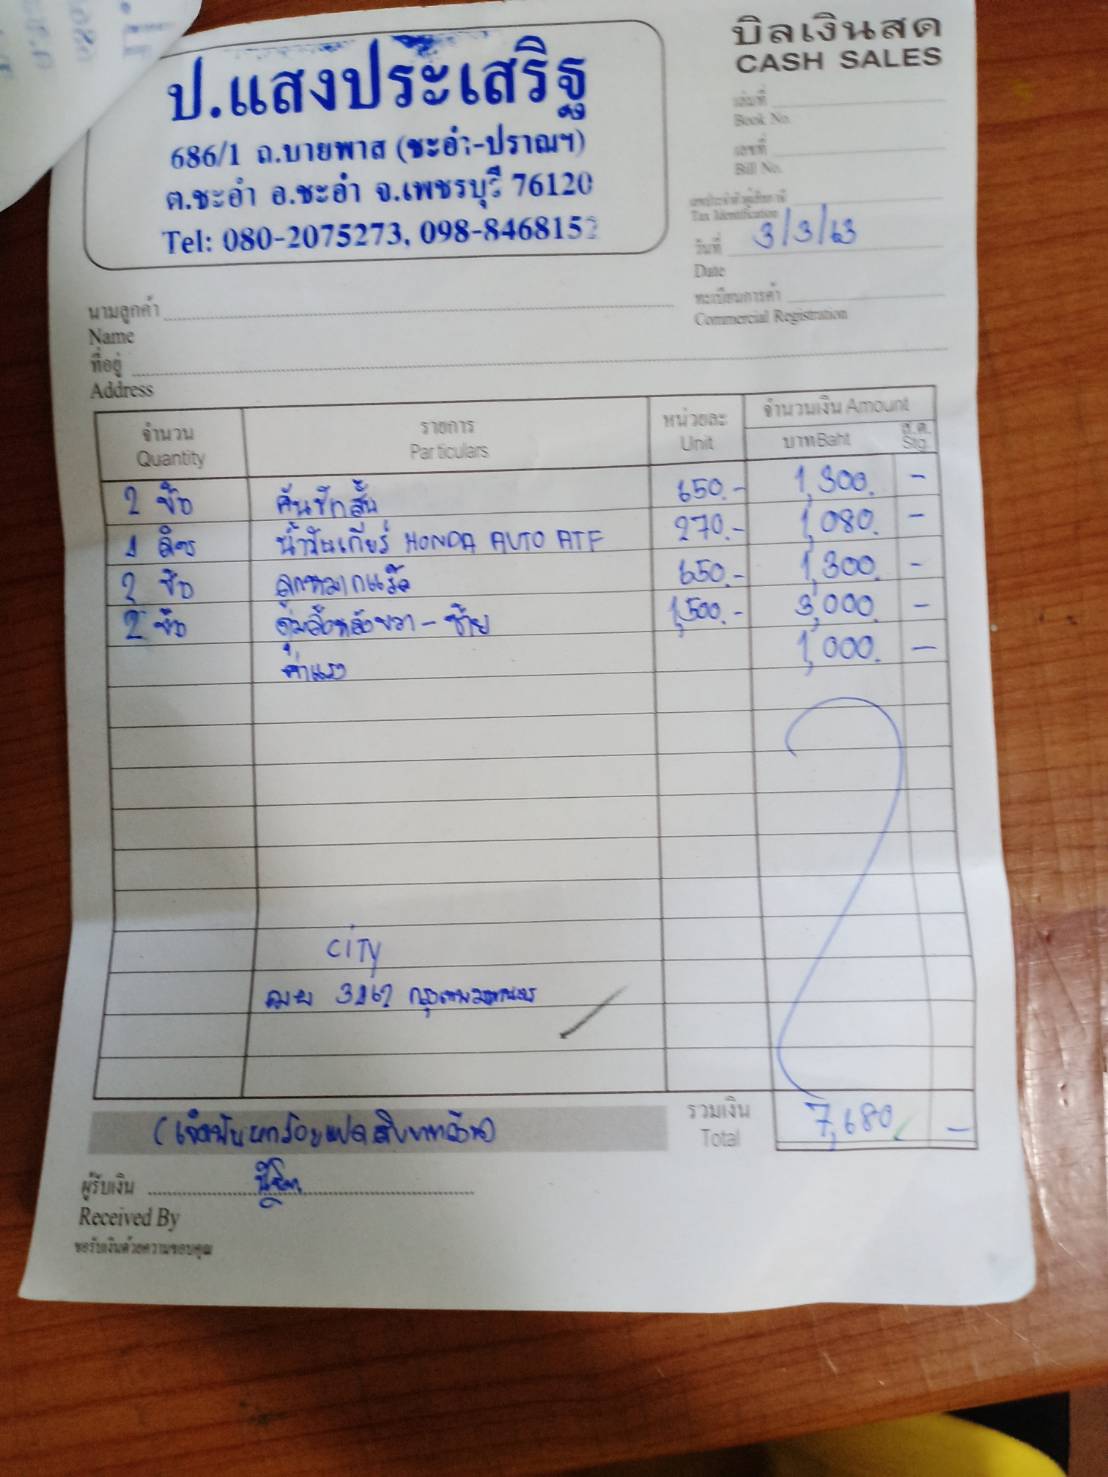 บิลเงินสด
CASH SALES
ป.แสงประเสริฐ
686/1 ถ.บายพาส (ชะอำ-ปราณฯ)
ต.ชะอำ อ.ชะอำ จ.เพชรบุรี 76120
Tel: 080-2075273, 098-8468152
เล่มที่
Book No.
เลขที่
Bill No.
Tax Identification
วันที่ 3/3/63
Date
ทะเบียนการค้า
Commercial Registration
นามลูกค้า
Name
ที่อยู่
Address
จำนวน รายการ หน่วยละ จำนวนเงิน Amount
Quantity Particulars Unit บาท Baht ส.ต. Stg.
2 ชิ้น คันชักสั้น 650.- 1,300. -
4 ลิตร น้ำมันเกียร์ HONDA AUTO ATF 270.- 1,080. -
2 ชิ้น ลูกหมากแร็ค 650.- 1,300. -
2 ชิ้น 1,500.- 3,000. -
ค่าแรง 1,000. -
CITY
กรุงเทพมหานคร
(เจ็ดพันหกร้อยแปดสิบบาทถ้วน) รวมเงิน 7,680 -
Total
ผู้รับเงิน
Received By
ขอรับเงินด้วยความขอบคุณ